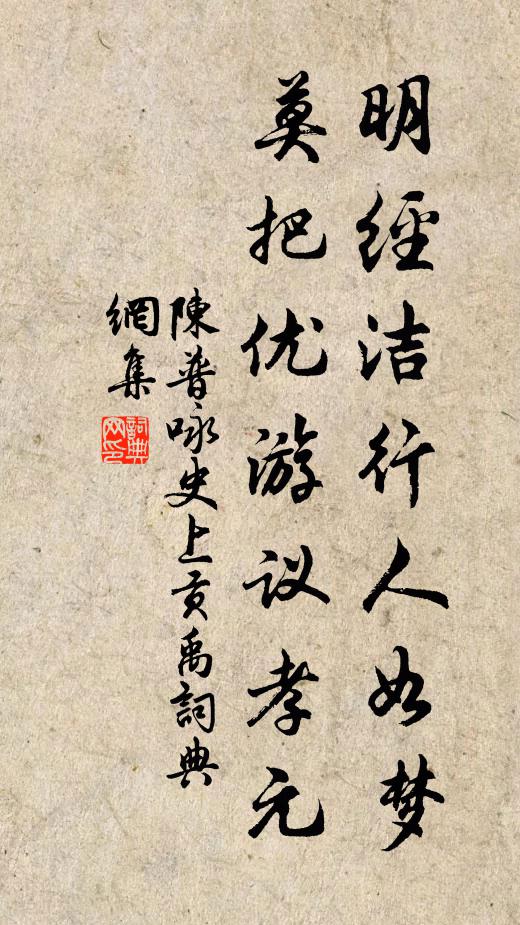 明經洁行人如梦
莫把优游议孝元
陳普咏史上贡禹詞典
網集
詞典
网印